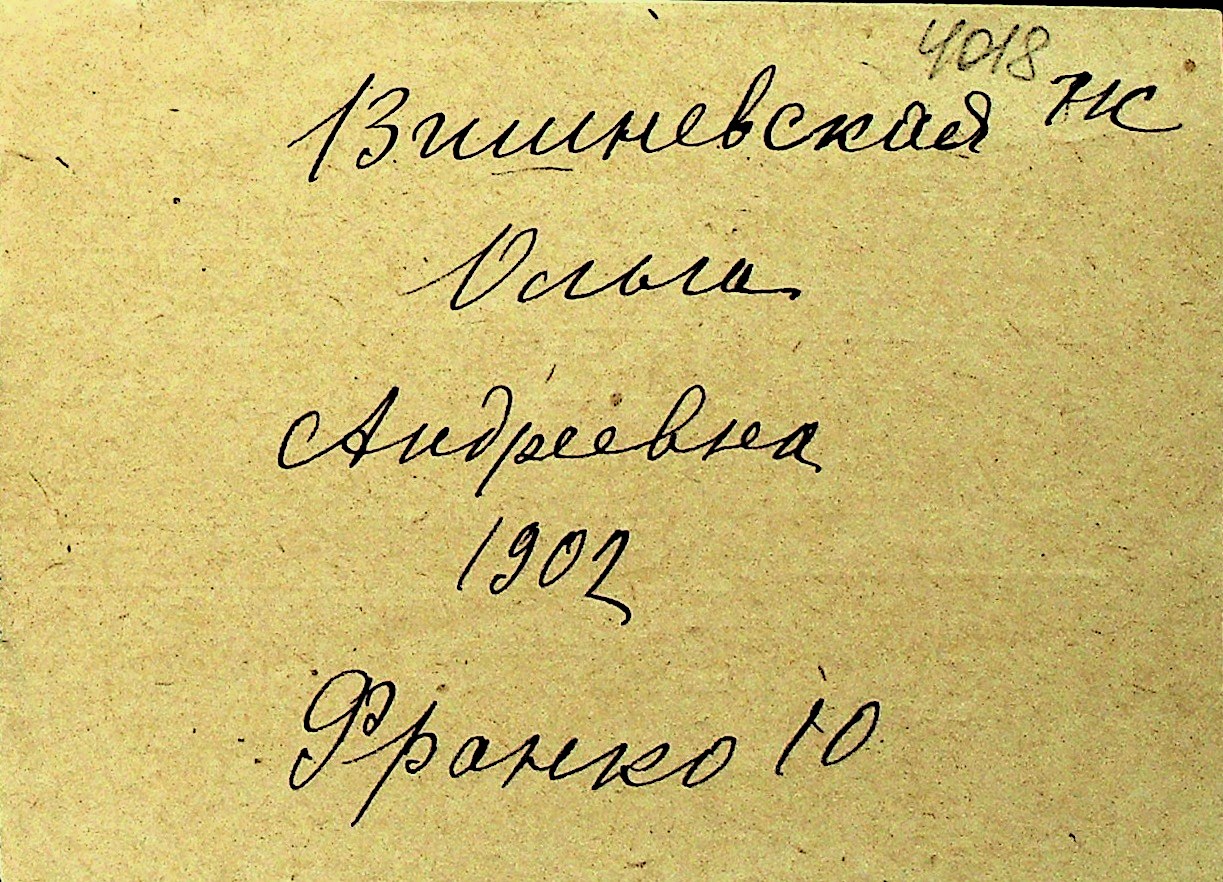 4018
Вишневская ТК
Ольга
Андреевна
1902
Франко 10